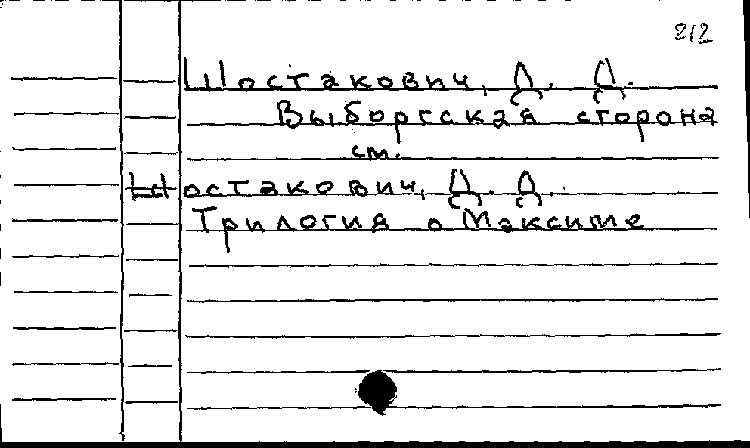 212
Шостакович, Д. Д.
Выборгская сторона
см.
Шостакович, Д. Д.
Трилогия о Максиме